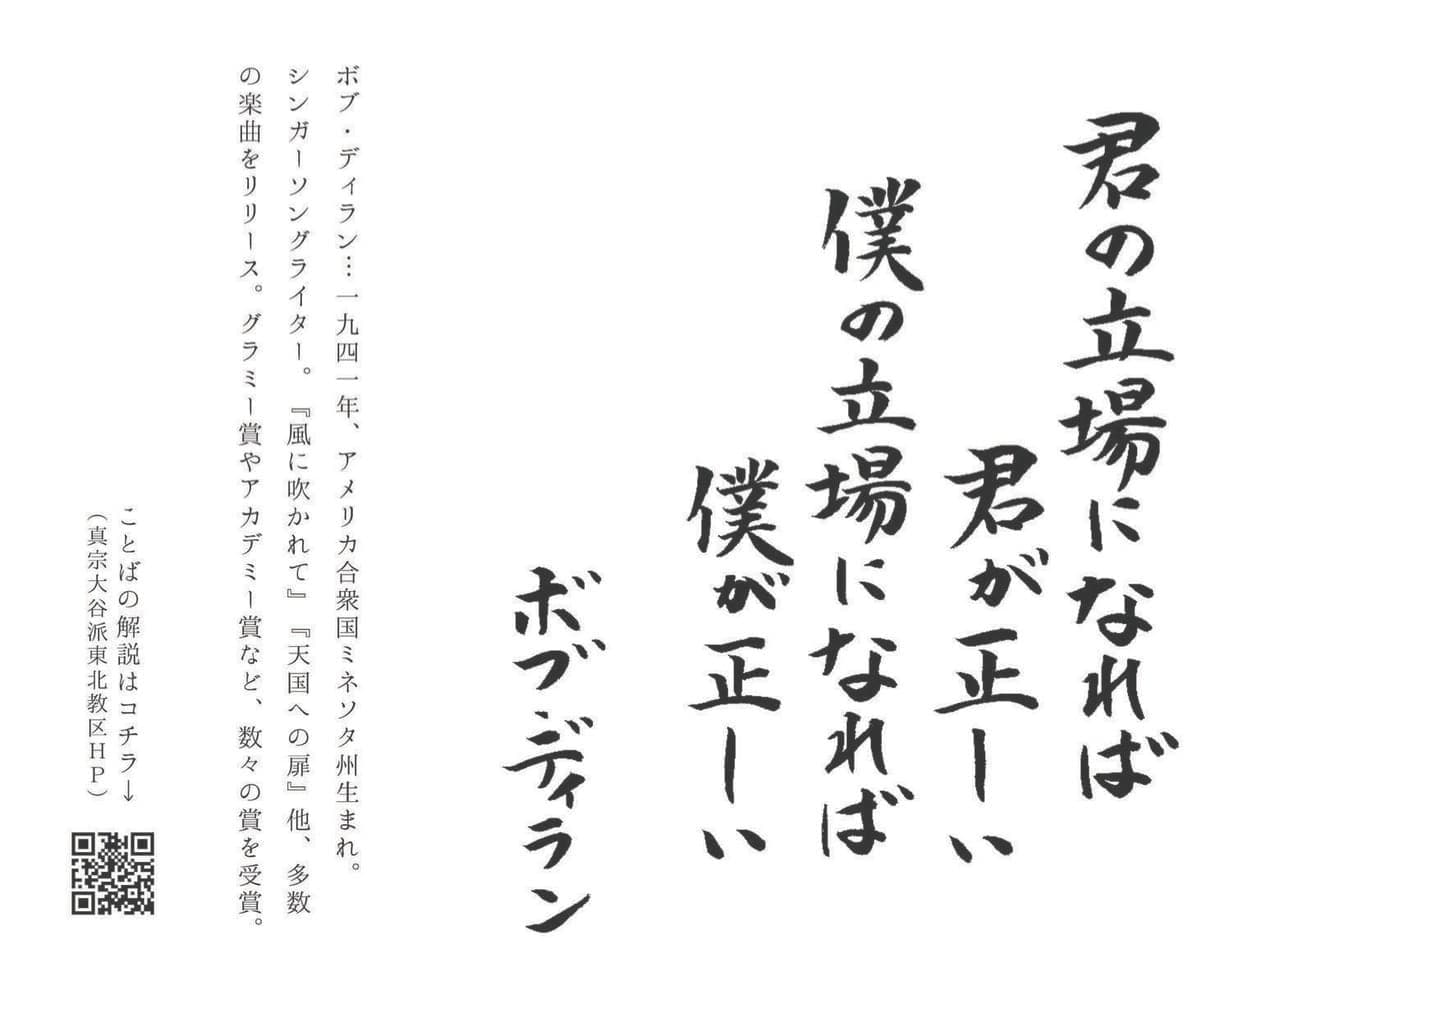 君の立場になれば
君が正しい
僕の立場になれば
僕が正しい
ボブ・ディラン
ボブ・ディラン…一九四一年、アメリカ合衆国ミネソタ州生まれ。
シンガーソングライター。『風に吹かれて』『天国への扉』他、多数
の楽曲をリリース。グラミー賞やアカデミー賞など、数々の賞を受賞。
ことばの解説はコチラ→
（真宗大谷派東北教区ＨＰ）